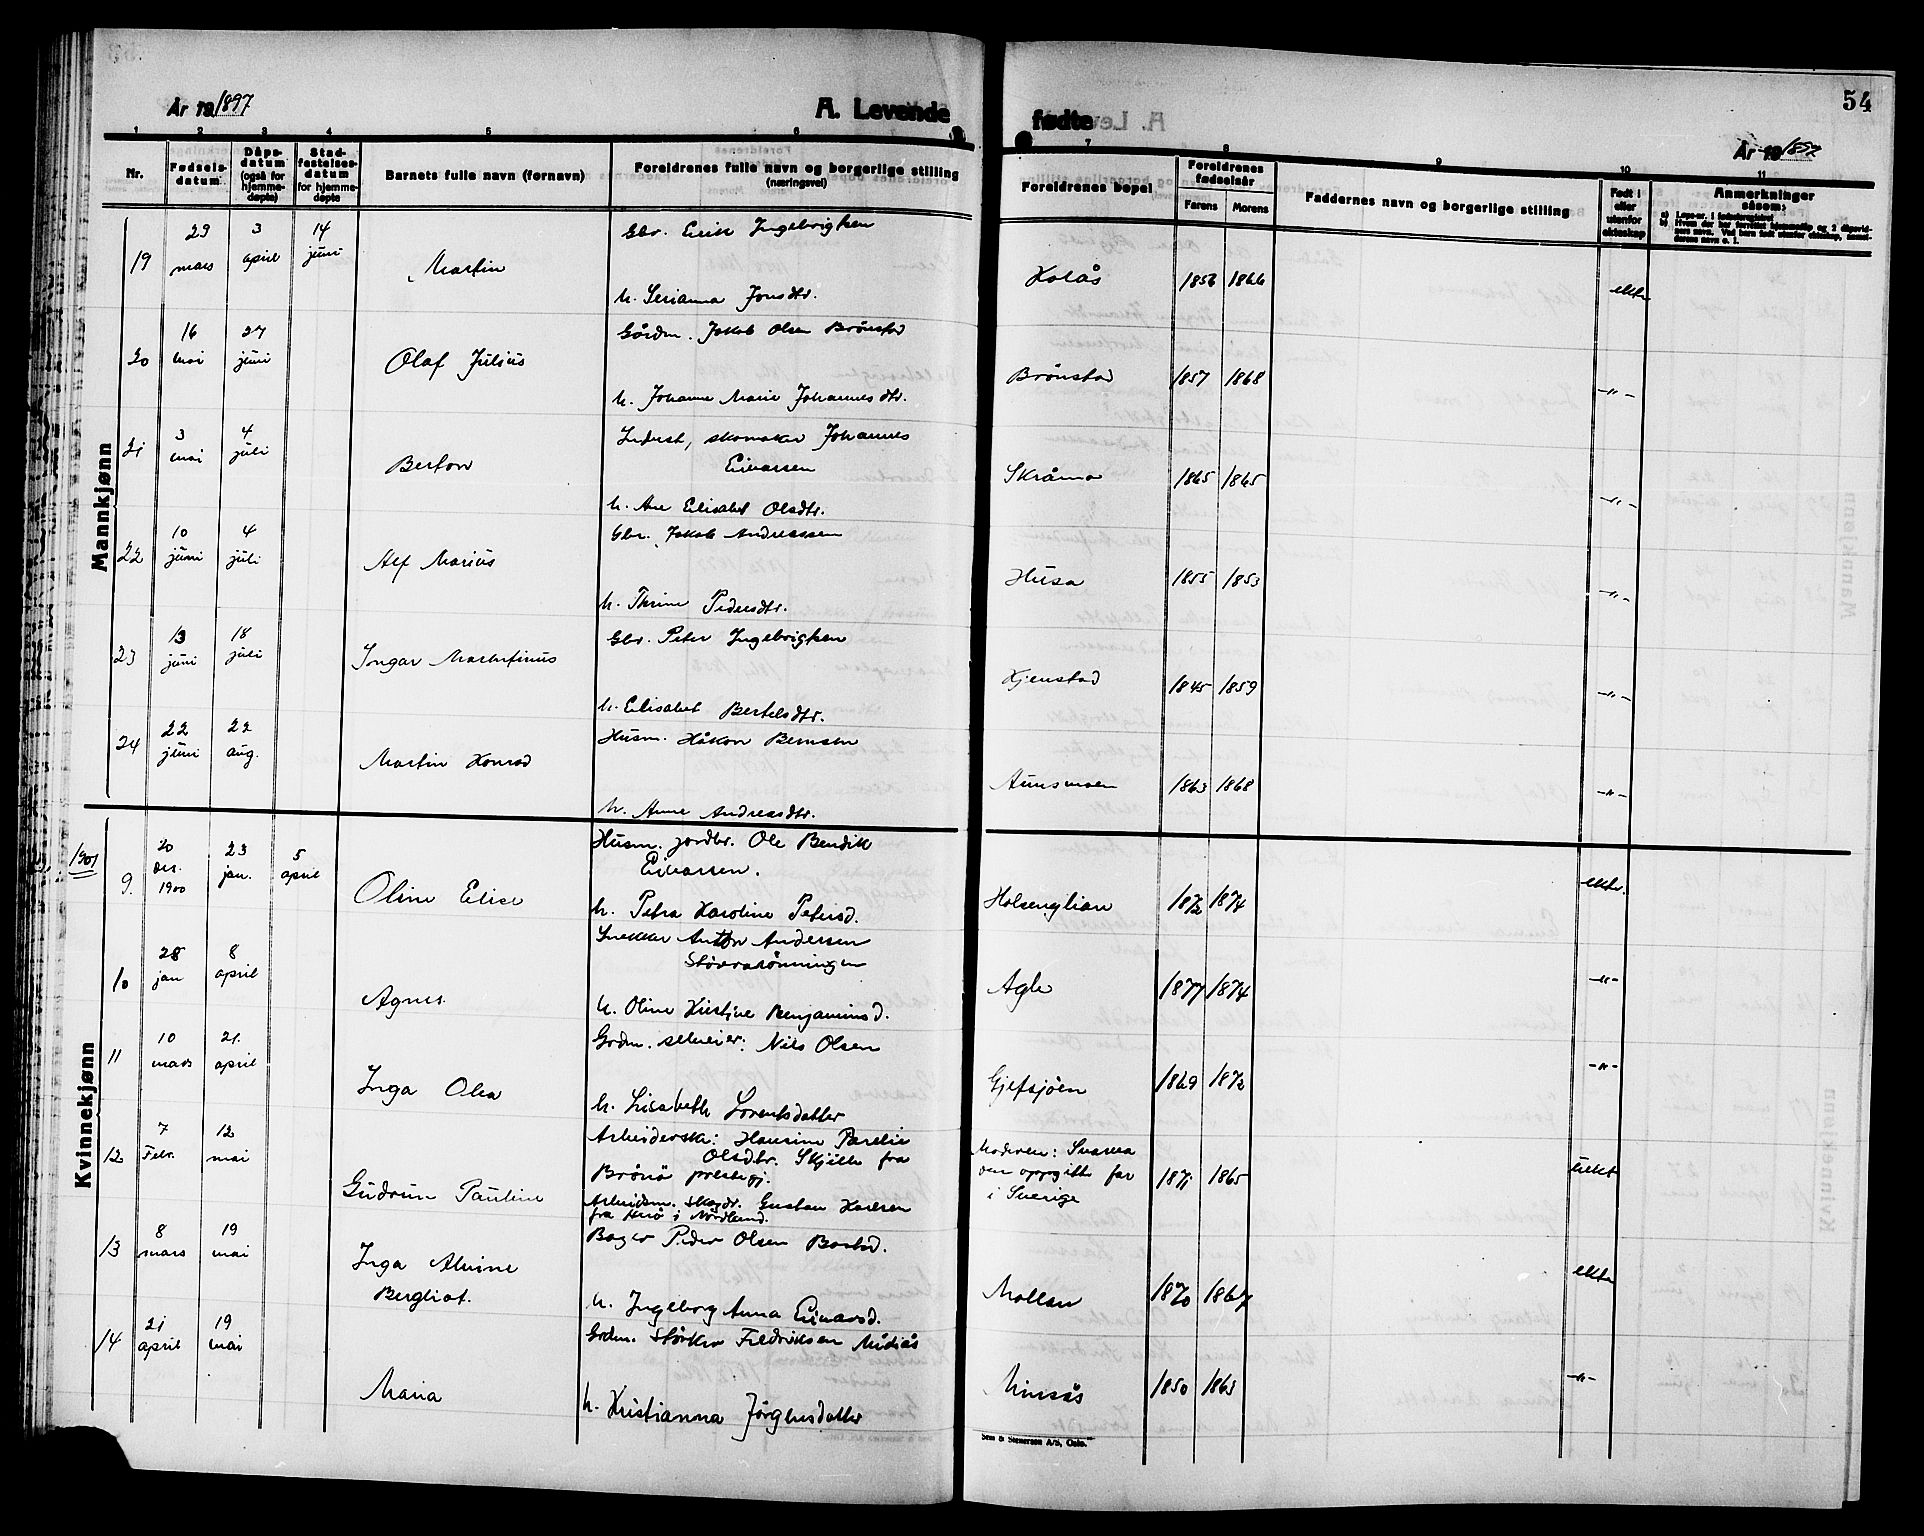 År 1897
A. Levende
fødte
54
År 1897
1 2 3 4 5 6 7 8 9 10 11
Nr.
Fødsels-
datum
Dåps-
datum
(også for
hjemme-
døpte)
Stad-
festelses-
datum
for hjemme-
døpte
Barnets fulle navn (fornavn)
Foreldrenes fulle navn og borgerlige stilling
(næringsvei)
Foreldrenes bopel
Foreldrenes
fødselsår
Farens Morens
Faddernes navn og borgerlige stilling
Født i
eller
utenfor
ekteskap
Anmerkninger
såsom:
Mannkjønn
19 29 mars 3 april 14 juni Martin
Gbr. Erik Ingebrigtsen
h. Serianna Jonsdtr.
Kolås 1856 1866 ekte
20 16 mai 27 juni Olaf Julius
Gårdm. Jakob Olsen Brønstad
h. Johanne Marie Johannesdtr.
Brønstad 1857 1868 -"-
21 3 mai 4 juli Berton
Inderst, skomaker Johannes
Eivarsen
h. Ane Elisabet Olsdtr.
Skråmo 1865 1865 -"-
22 10 juni 4 juli Alf Marius
Gbr. Jakob Andreassen
h. Thrine Pedersdtr.
Husa 1855 1853 -"-
23 13 juni 18 juli Ingar Martinius
Gbr. Peter Ingebrigtsen
h. Elisabet Bertelsdtr.
Kjenstad 1845 1859 -"-
24 22 juni 22 aug. Martin Konrad
Husm. Håkon Bernsen
h. Anne Andreasdtr.
Aunsmoen 1863 1868 -"-
Kvinnekjønn
1901
9. 20 des. 1900 23 jan. 5 april Oline Elise
Husm. jordbr. Ole Bendik
Eivarsen.
h. Petra Karoline Petersd.
Holsenglian 1872 1874 ekte.
10 28 jan 8 april Agnes
Snekker Anton Andersen
Størerarønningen
h. Oline Kristine Benjaminsd.
Agle 1877 1874 -"-
11 10 mars 21. april Inga Olea
Grdm. selveier: Nils Olsen
h. Lisabeth Lorentsdatter
Gjefsjøen 1869 1872 -"-
12 7 Febr. 12 mai Gudrun Pauline
Arbeiderske: Hansine Parelie
Olsdtr. Skjille fra
Brønø prestegj.
Arbeidsm. Skogdr. Gustav Karlsen
fra Herø i Nordland.
Moderen: Snaasa
den oppgitte far
i Sverige
1871 1865 uekte
13 8 mars 19 mai Inga Alvine
Bergliot.
Bager Peder Olsen Bostad.
h. Ingeborg Anna Eivarsd.
Mollan 1870 1867 ekte
14 21 april 19 mai Maria
Grdm. Størker Fredriksen Midtiås
h. Kristianna Jørginsdatter
Minsås 1850 1863 -"-
Sem & Stenersen A/S, Oslo.